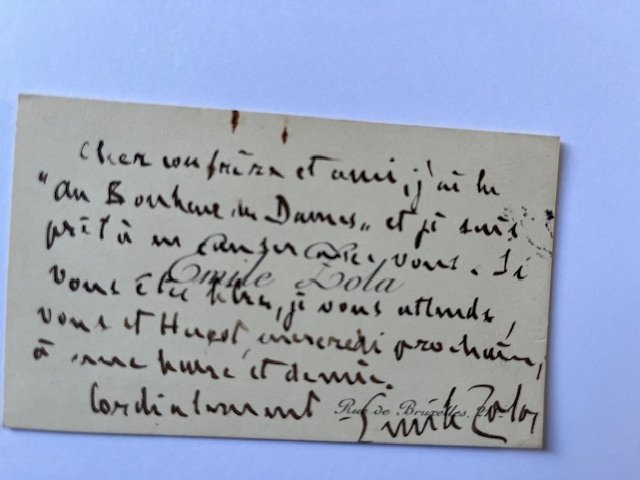 Cher confrère et ami, j'ai lu
"Au Bonheur des Dames" et je suis
prêt à en causer avec vous. Si
Emile Zola
vous êtes libre, je vous attends,
vous et Hugot, mercredi prochain,
à une heure et demie.
Cordialement
Rue de Bruxelles, 21bis
Emile Zola